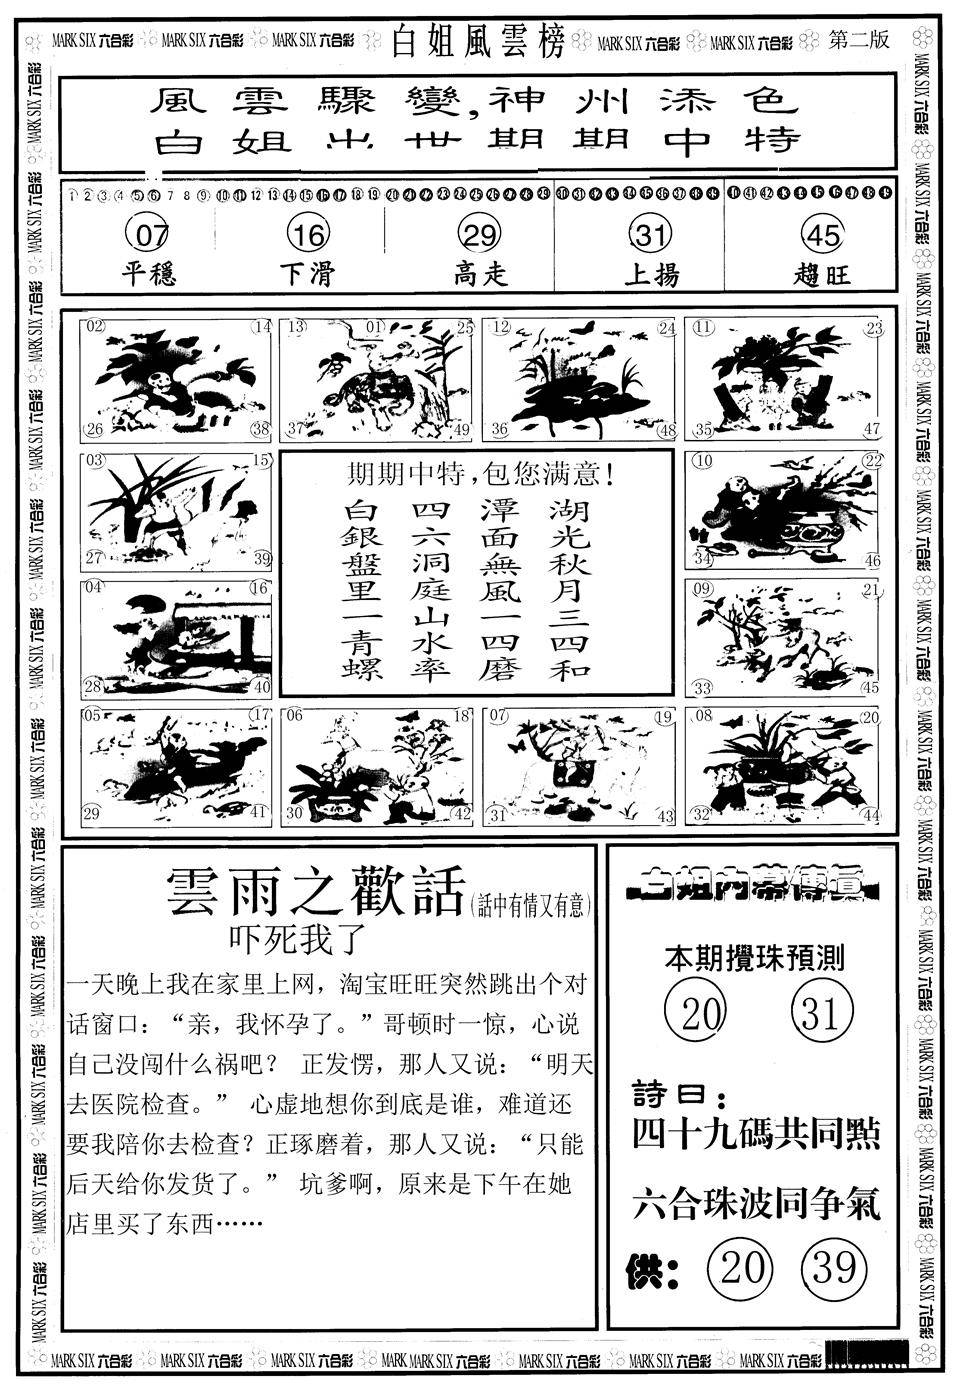 MARK SIX 六合彩 MARK SIX 六合彩 MARK SIX 六合彩 白姐風雲榜 MARK SIX 六合彩 MARK SIX 六合彩 第二版
風雲驟變,神州添色
白姐出世期期中特
1 2 3 4 5 6 7 8 9 10 11 12 13 14 15 16 17 18 19 20 21 22 23 24 25 26 27 28 29 30 31 32 33 34 35 36 37 38 39 40 41 42 43 44 45 46 47 48 49
07 16 29 31 45
平穩 下滑 高走 上揚 趨旺
02 14 13 01 25 12 24 11 23
26 38 37 49 36 48 35 47
03 15
27 39
04 16
28 40
期期中特,包您满意!
湖光秋月三四和
潭面無風一四磨
四六洞庭山水率
白銀盤里一青螺
10 22
34 46
09 21
33 45
05 17 06 18 07 19 08 20
29 41 30 42 31 43 32 44
雲雨之歡話(話中有情又有意)
吓死我了
一天晚上我在家里上网，淘宝旺旺突然跳出个对
话窗口：“亲，我怀孕了。”哥顿时一惊，心说
自己没闯什么祸吧？ 正发愣，那人又说：“明天
去医院检查。” 心虚地想你到底是谁，难道还
要我陪你去检查？正琢磨着，那人又说：“只能
后天给你发货了。” 坑爹啊，原来是下午在她
店里买了东西……
白姐内幕傳真
本期攪珠預測
20 31
詩曰：
四十九碼共同點
六合珠波同争氣
供： 20 39
MARK SIX 六合彩 MARK SIX 六合彩 MARK SIX 六合彩 MARK MARK SIX 六合彩 MARK SIX 六合彩 MARK SIX 六合彩 MARK SIX 六合彩